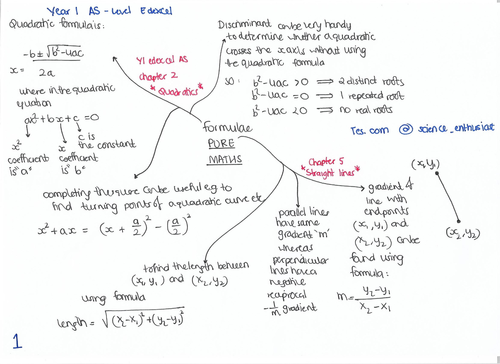 Year 1 AS-Level Edexcel
Quadratic formula is:
-b ± √b²-4ac
x =
2a
where in the quadratic
equation
ax²+bx+c=0
x²
coefficient
is "a"
x
coefficient
is "b"
c is
the constant
Y1 edexcel AS
chapter 2
*Quadratics*
Discriminant can be very handy
to determine whether a quadratic
crosses the x axis without using
the quadratic formula
so: b²-4ac >0 ⟹ 2 distinct roots
b²-4ac =0 ⟹ 1 repeated root
b²-4ac <0 ⟹ no real roots
Tes.com @science_enthusiat
formulae
PURE
MATHS
completing the square can be useful eg to
find turning points of a quadratic curve etc
x²+ax = (x + a/2)² - (a/2)²
Chapter 5
*Straight lines*
to find the length between
(x₁,y₁) and (x₂,y₂)
using
formula
length = √(x₂-x₁)²+(y₂-y₁)²
parallel lines
have same
gradient 'm'
whereas
perpendicular
lines have a
negative
reciprocal
-1/m gradient
gradient of
line with
endpoints
(x₁,y₁) and
(x₂,y₂) can be
found using
formula:
m = y₂-y₁
x₂-x₁
(x₁,y₁)
(x₂,y₂)
1